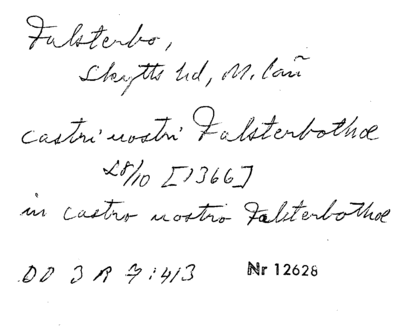 Falsterbo,
Skytts hd, M. län
castri nostri Falsterbothæ
28/10 [1366]
in castro nostro Falsterbothæ
DD 3 R 7:413 Nr 12628